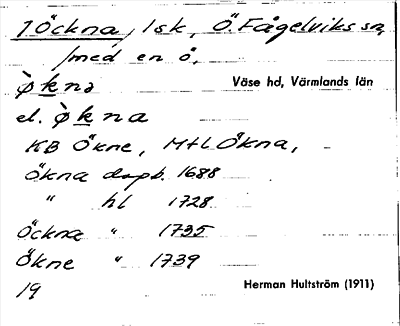 1 Öckna, 1sk, Ö. Fågelviks sn,
/med en ö,
Väse hd, Värmlands län
ø̀ knə
el. ø̀ k na
KB Ökne, MtLÖkna,
Ökna dopb. 1688
" hl 1728
Öckna " 1735
Ökne " 1739
19
Herman Hultström (1911)